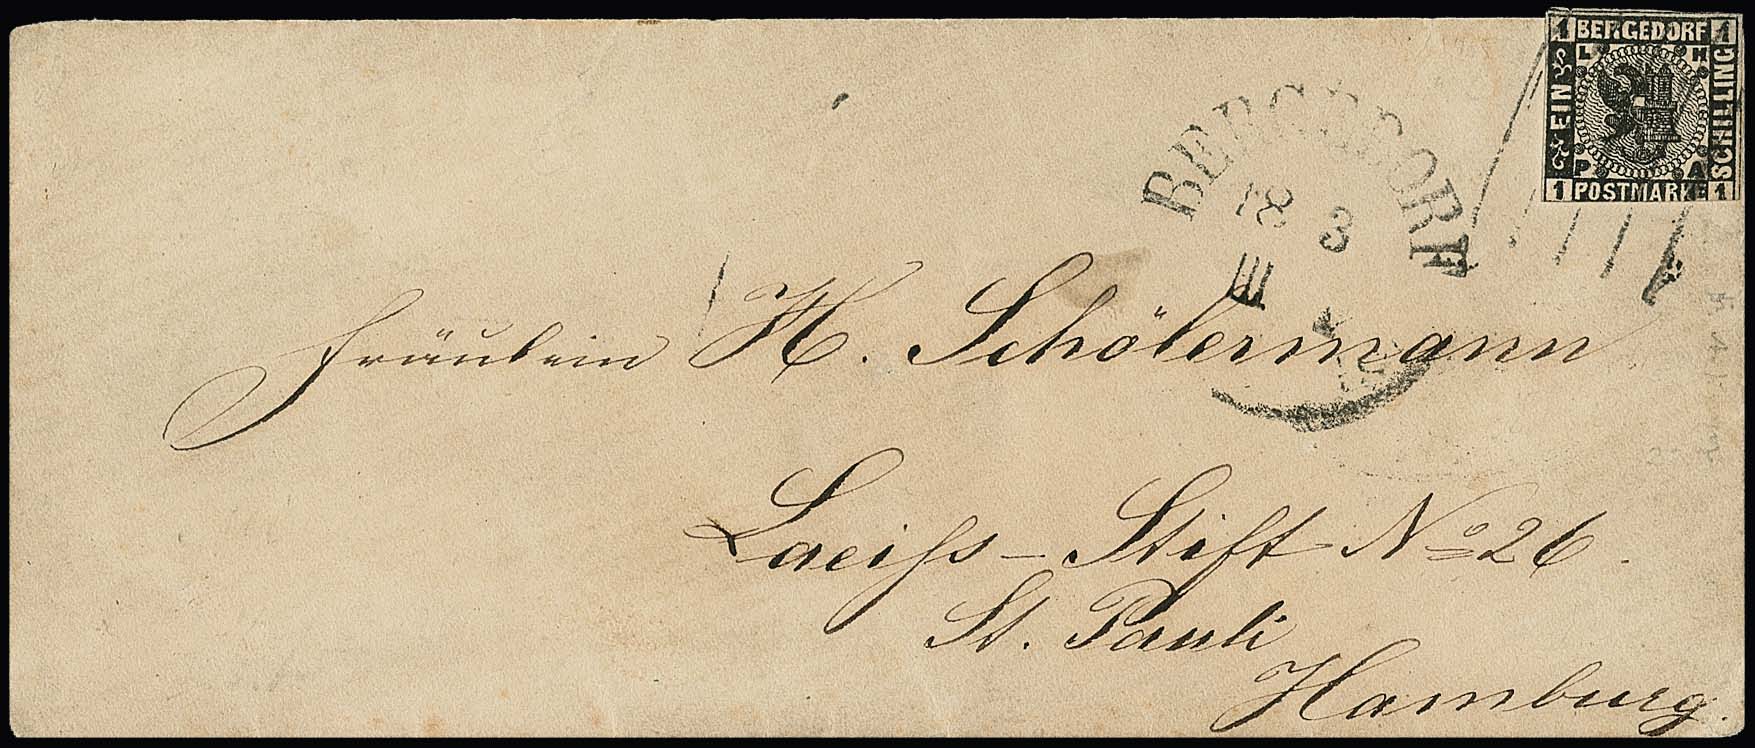 1 BERGEDORF 1
L H
EIN
SCHILLING
P A
1 POSTMARKE 1
BERGEDORF
18 3
III
Fräulein H. Schölermann
Laeiß-Stift No 26.
St. Pauli
Hamburg.